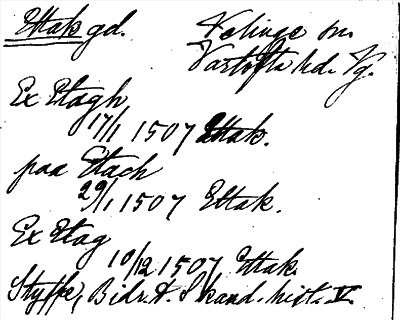 Ettak gd. Velinge sn.
Vartofta hd. Vg.
Ex Etagh
17/1 1507 Ettak.
paa Etach
29/1 1507 Ettak.
Ex Etag
10/12 1507 Ettak.
Styffe, Bidr. t. Skand. hist. V.